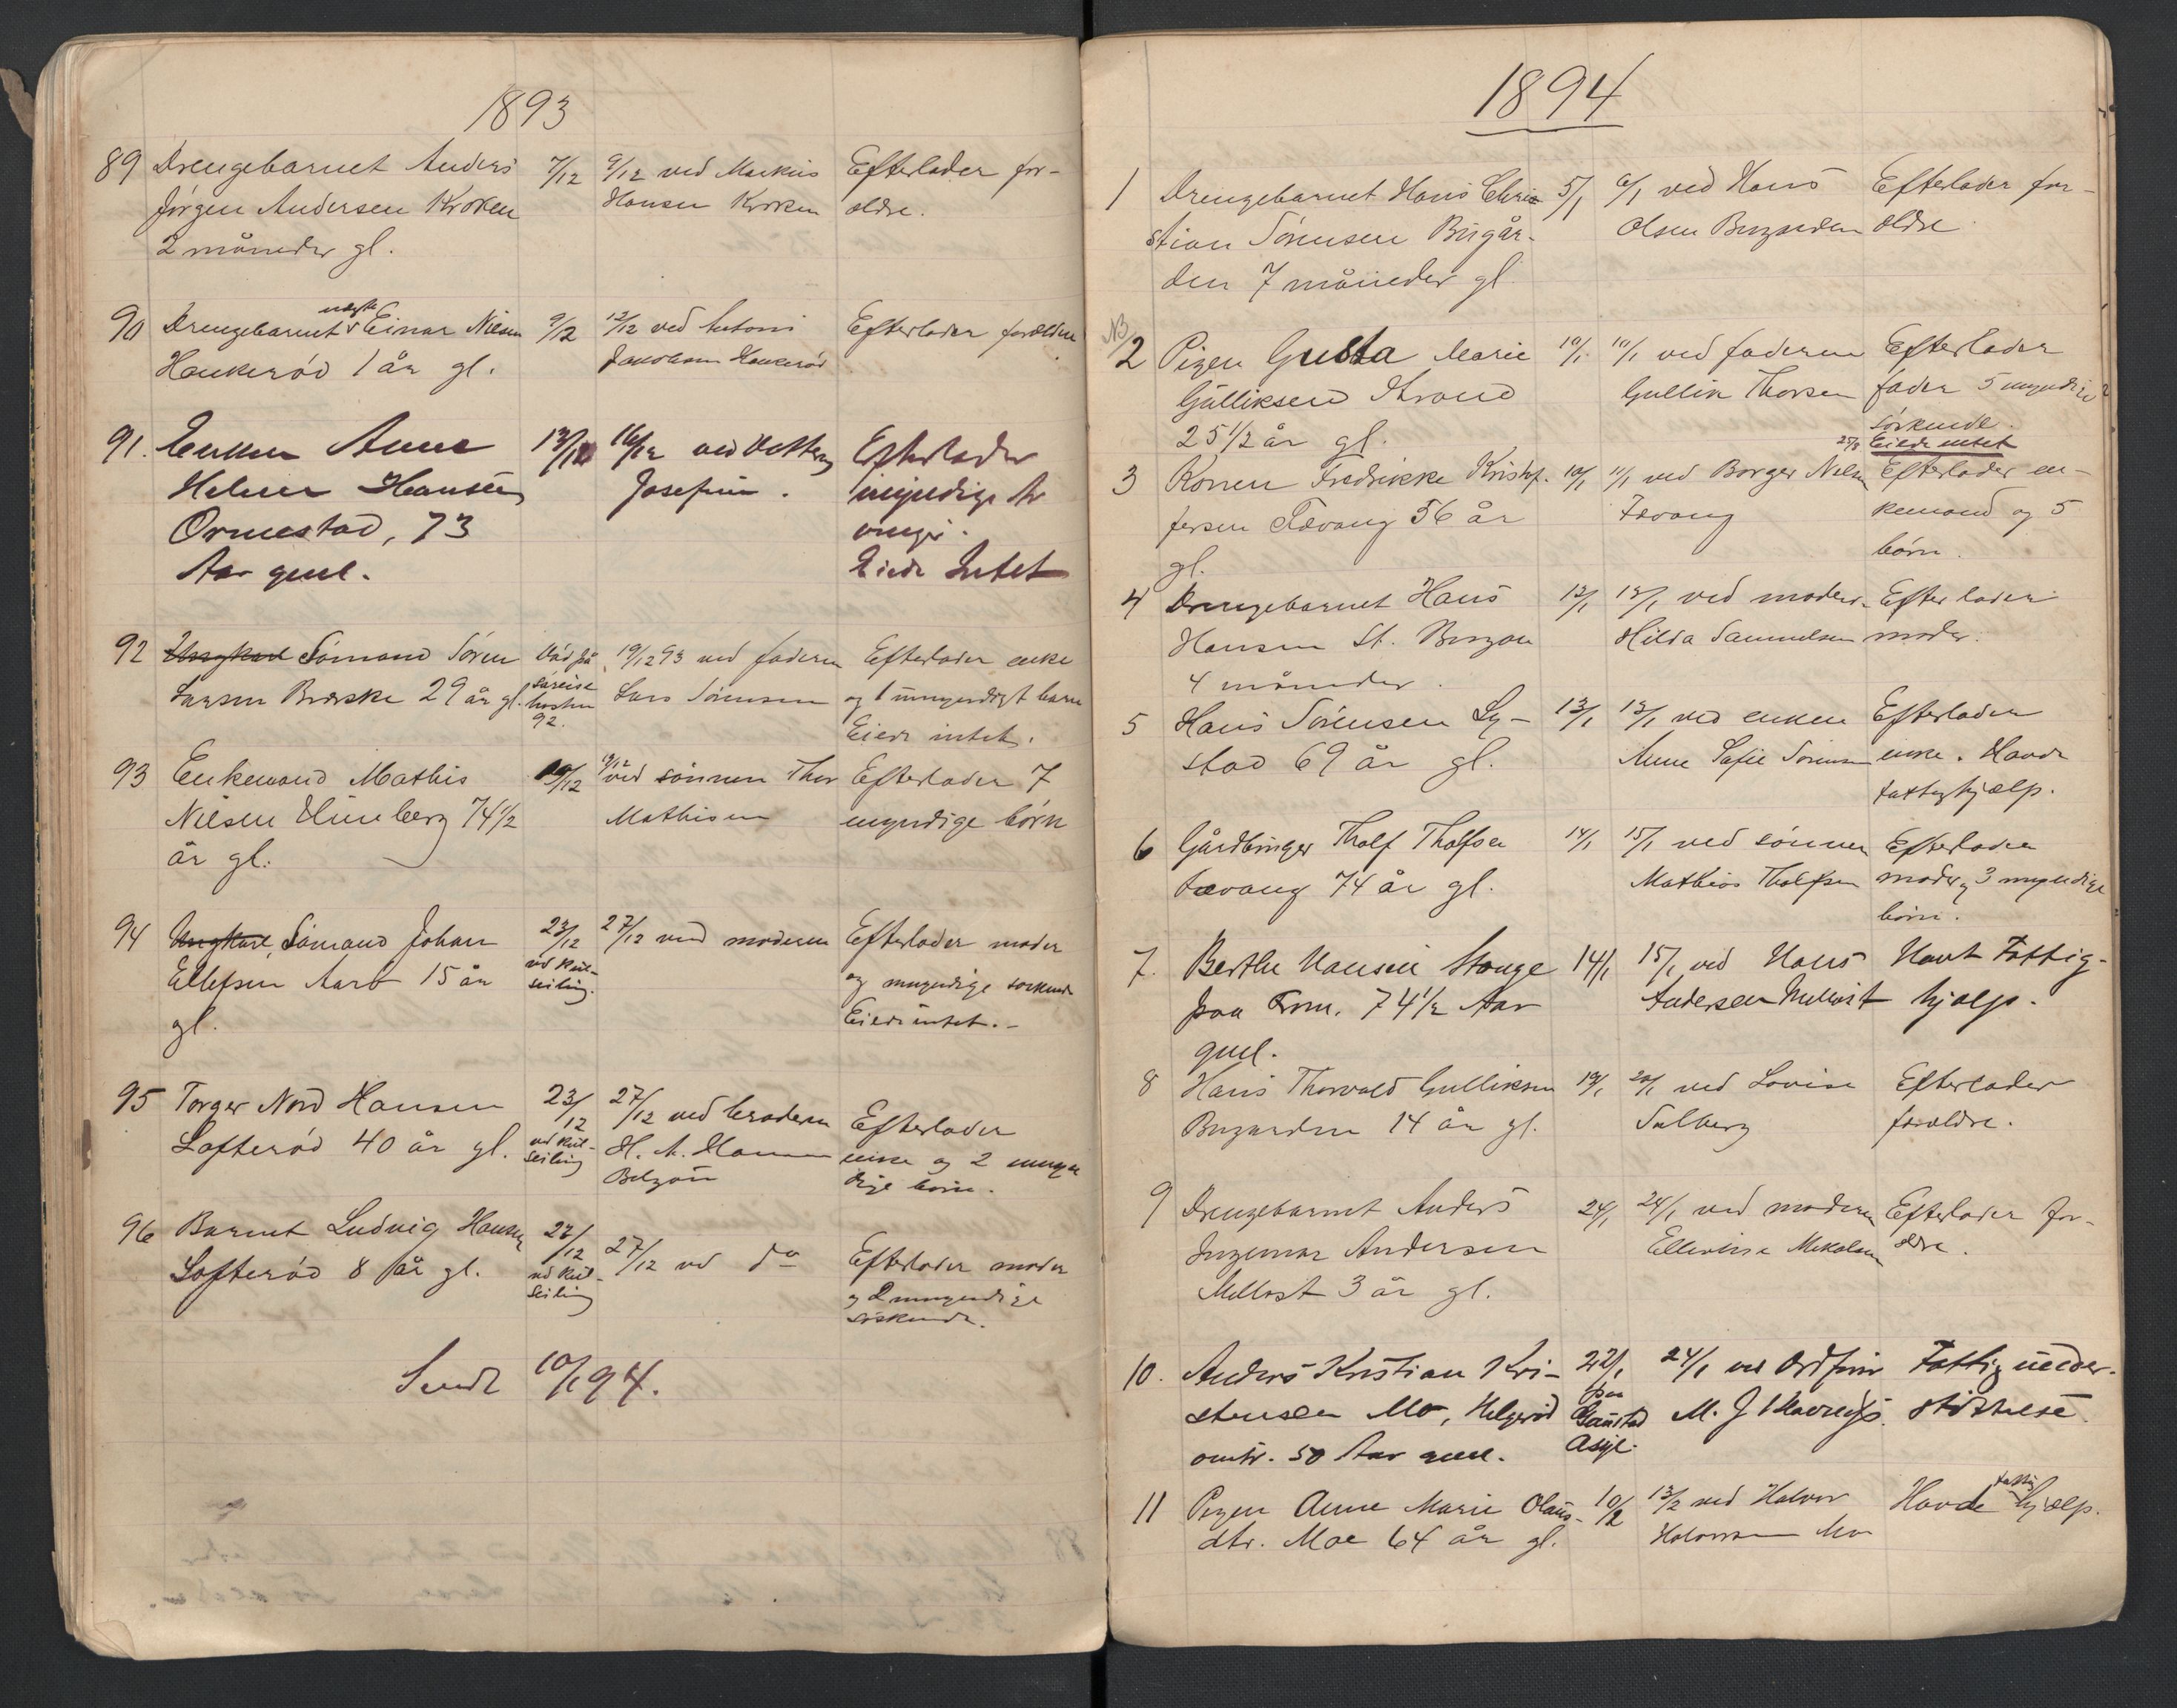 1893
89 Drengebarnet Anders 7/12 9/12 ved Markus Efterlader for-
Jörgen Andersen Kroken Hansen Kroken ældre.
2 måneder gl.
90 Drengebarnet Einar Nilsen 9/12 12/12 ved Antoni Efterlader forældre
Haukeröd 1 år gl. Jakobsen Haukeröd
91. Enken Anne 13/12 16/12 ved Efterlader
Helene Hansen Josefsen. myndige Ar
Ormestad, 73 vinger.
Aar guel. Eiede Intet
92 Ungkarl Sömand Sören Död på 19/12 93 ved faderen Efterlader enke
Larsen Bræske 29 år gl. söreise Lars Sörensen og 1 umyndigt barn
hösten
92. Eiede intet.
93 Enkemand Mathis 19/12 19/12 ved sönnen Thor Efterlader 7
Nilsen Himberg 74½ Mathisen myndige börn
år gl.
94 Ungkarl, Sömand Johan 23/12 27/12 ved moderen Efterlader moder
Ellefsen Aarö 15 år ved kul- og myndige söskende
gl. seiling. Eiede intet.-
95 Torger Nord Hansen 23/12 27/12 ved broderen Efterlader
Lofteröd 40 år gl. ved kul- H. A. Hansen enke og 2 umyn
seiling dige börn.
96 Barnet Ludvig Hansen 23/12 27/12 ved do Efterlader moder
Lofteröd 8 år gl. ved kul- og 2 umyndige
seiling söskende.
Sendt 10/1 94.
1894
1 Drengebarnet Hans Chri- 5/1 6/1 ved Hans Efterlader for-
stian Sörensen Bugår- Olsen Bugården ældre
den 7 måneder gl.
NB
2 Pigen Gusta Marie 10/1 10/1 ved faderen Efterlader
Gulliksen Strand Gullik Thorsen fader 5 myndige
25½ år gl. söskende.
25/8 Eiede intet
3 Konen Fredrikke Kristof- 10/1 11/1 ved Borger Nilsen Efterlader en-
fersen Tævang 56 år Tævang kemand og 5
gl. börn.
4 Drengebarnet Hans 12/1 13/1 ved moder. Efterlader
Hansen St. Borgen Hilda Samuelsen moder.
4 måneder.
5 Hans Sörensen Ly- 13/1 13/1 ved enken Efterlader
stad 69 år gl. Anne Sofie Sörensen enke. Havde
fattighjælp.
6 Gårdbruger Tholf Tholfsen 14/1 15/1 ved sönnen Efterlader
Tævang 74 år gl. Mathias Tholfsen moder, 3 myndige
börn.
7. Berthe Hansen Stange 14/1 15/1 ved Hans Havt Fattig-
paa Tom. 74½ Aar Andersen Mellöst hjælp.
guel.
8 Hans Thorvald Gulliksen 19/1 20/1 ved Lovise Efterlader
Buгården 14 år gl. Solberg forældre.
9 Drengebarnet Anders 24/1 24/1 ved moderen Efterlader for-
Ingemar Andersen Ellevine Mikalsen ældre.
Mellöst 3 år gl.
10. Anders Kristian Kri- 22/1 24/1 ved Ordförer Fattigunder-
stensen Mo, Helgeröd paa Gaustad M. J. stöttelse.
omtr. 50 Aar guel. Asyl.
11 Pigen Anne Marie Olaus- 10/2 13/2 ved Halvor Havde fattighjælp.
dtr. Moe 64 år gl. Halvorsen Mo